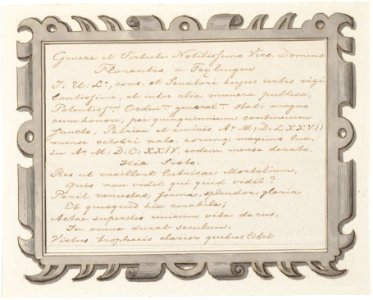 Genere et Virtute Nobilissimo Viro. Domino
Florentio a Teylingen
I. U. Do, cons, et Senatori hujus urbis vigi
lantissimo, et inde alia munera publica,
Potentissm Ordm generalm Stat. magno
cum honore, per quinquennium continuum
functo, Patriae et amicis Ao M.D.LXXVII
mense octobri nato, coramq. magnum luc
tu Ao M.D.C.XXIV. eodem mense denato.
Hic Sisto.
Res ut vacillent lubricae Mortalium,
Quis non videt qui quid videt?
Perit venustas, forma, splendor, gloria
Et quicquid hic amabile;
Actae superstes unicum vitae decus,
In omne durat seculum.
Virtus trophaeis clarior quibuslibet